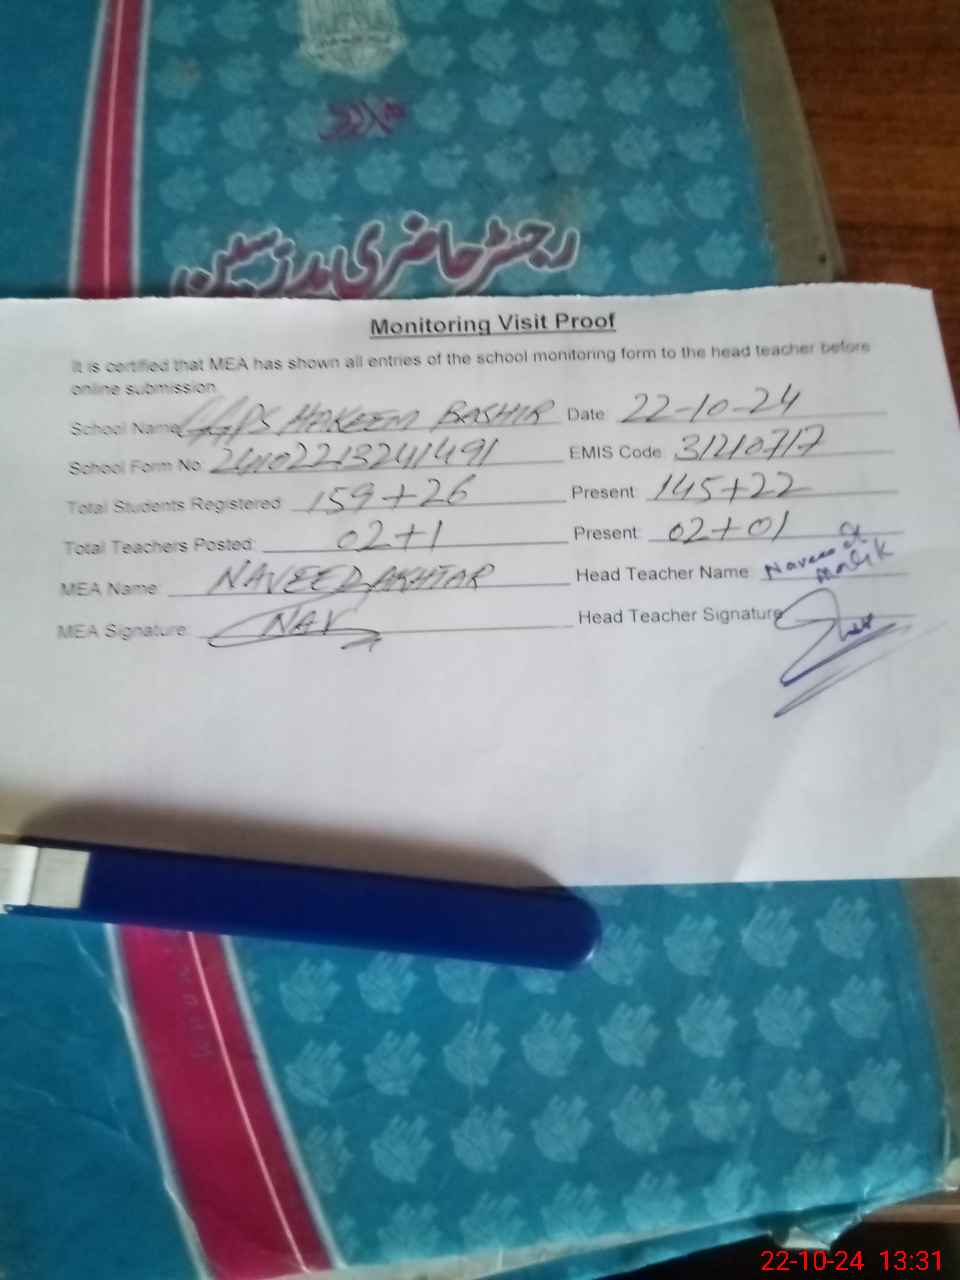 رجسٹر حاضری مدرسین
Monitoring Visit Proof
It is certified that MEA has shown all entries of the school monitoring form to the head teacher before
online submission.
School Name HAKEEM BASHIR Date: 22-10-24
School Form No: EMIS Code: 31210717
Total Students Registered: 159+26 Present: 145+22
Total Teachers Posted: 02+1 Present: 02+01
MEA Name: NAVEED AKHTAR Head Teacher Name: Naveed
Malik
MEA Signature: NAV Head Teacher Signature
22-10-24 13:31